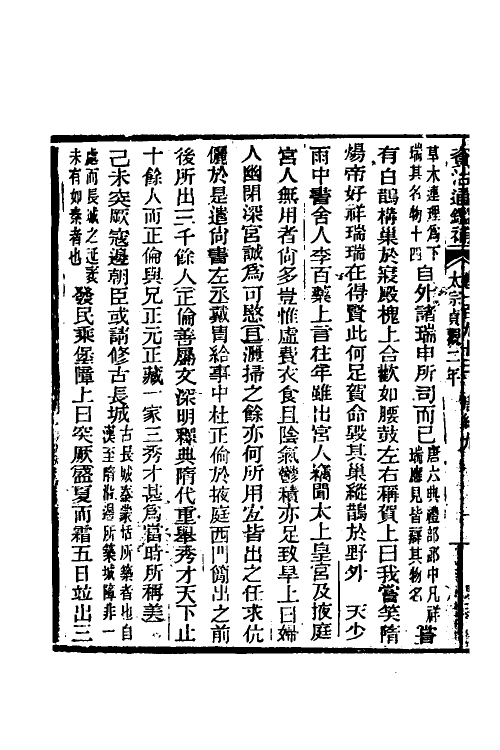 資治通鑑補 太宗貞觀二年
草木連理爲下
瑞其名物十四
自外諸瑞申所司而已
唐六典禮部郎中凡祥
瑞應見皆辯其物名
嘗
有白鵲構巢於寢殿槐上合歡如腰鼓左右稱賀上曰我嘗笑隋
煬帝好祥瑞瑞在得賢此何足賀命毀其巢縱鵲於野外 天少
雨中書舍人李百藥上言往年雖出宮人竊聞太上皇宮及掖庭
宮人無用者尙多豈惟虛費衣食且陰氣鬱積亦足致旱上曰婦
人幽閉深宮誠爲可愍且灑掃之餘亦何所用宜皆出之任求伉
儷於是遣尙書左丞戴胄給事中杜正倫於掖庭西門簡出之前
後所出三千餘人正倫善屬文深明釋典隋代重舉秀才天下止
十餘人而正倫與兄正元正藏一家三秀才甚爲當時所稱美
己未突厥寇邊朝臣或請修古長城
古長城秦蒙恬所築者也自
漢至隋緣邊所築城障非一
處而長城之延袤
未有如秦者也
發民乘堡障上曰突厥盛夏而霜五日竝出三